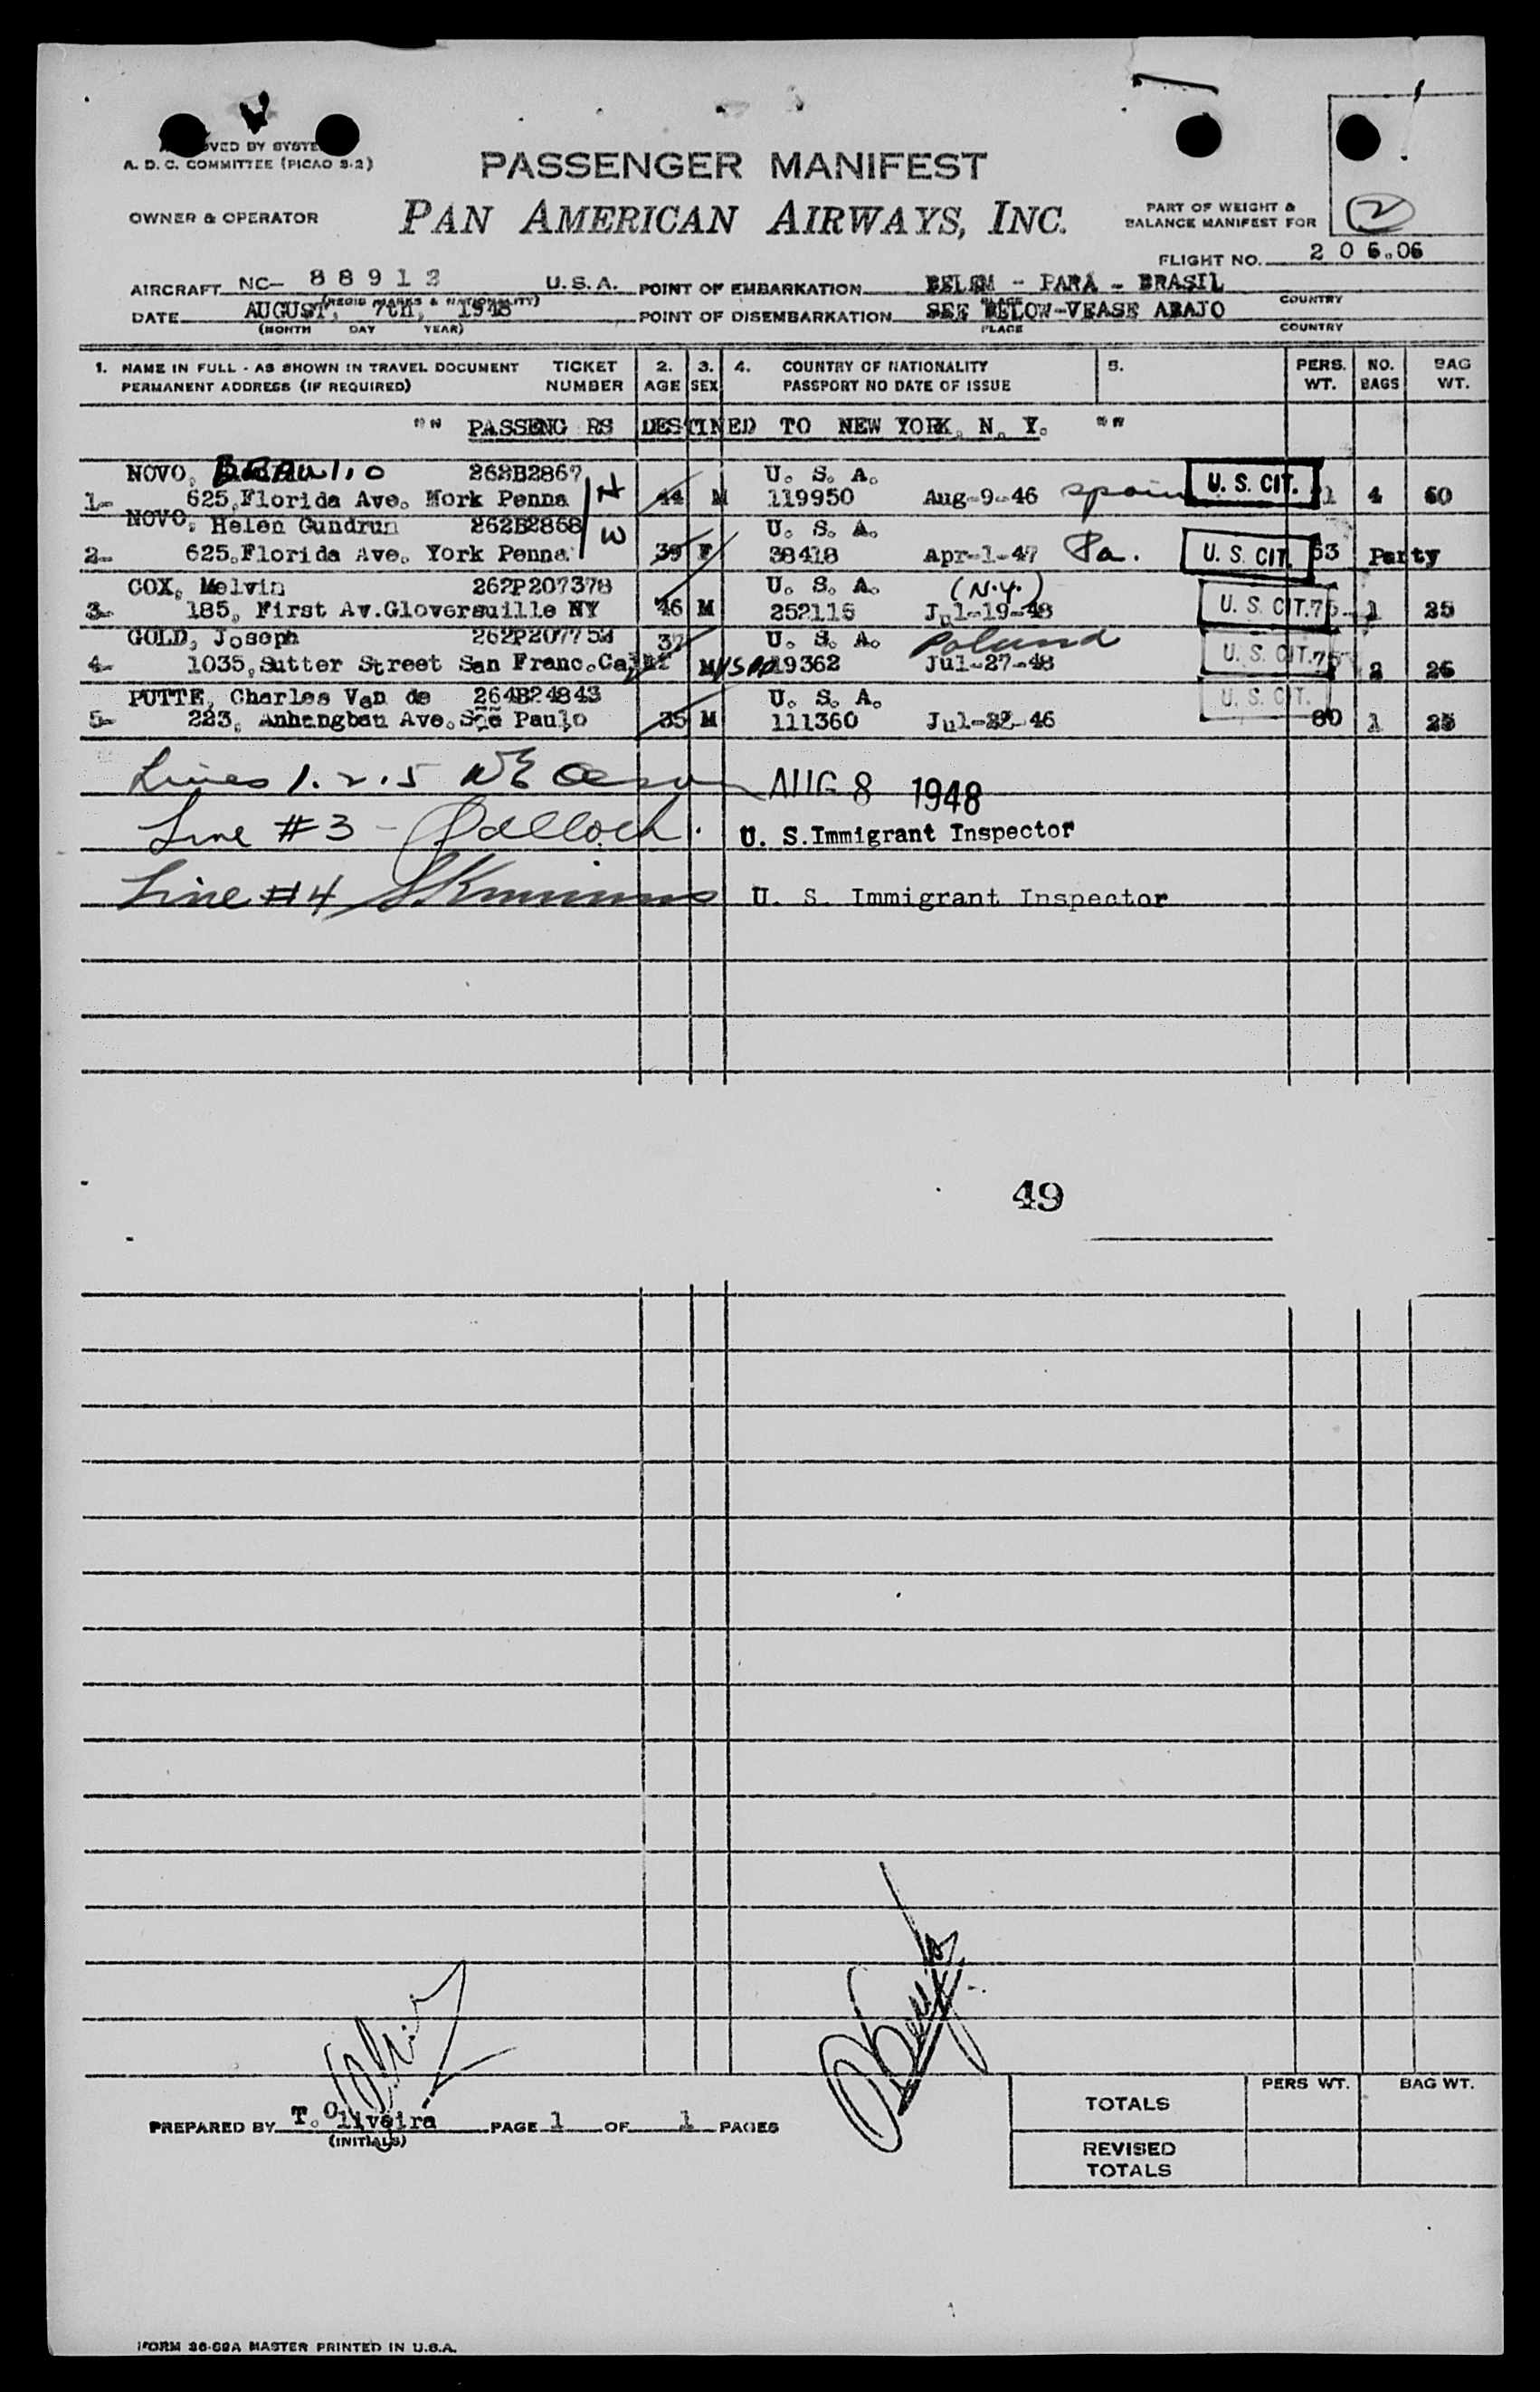 A. D. C. COMMITTEE (PICAO S-2)
PASSENGER MANIFEST
OWNER & OPERATOR
PAN AMERICAN AIRWAYS, INC.
PART OF WEIGHT &
BALANCE MANIFEST FOR
2
FLIGHT NO. 206.06
AIRCRAFT NC- 88912 U.S.A. POINT OF EMBARKATION BELEM - PARA - BRASIL
(REGIS MARKS & NATIONALITY) PLACE COUNTRY
DATE AUGUST, 7th, 1948 POINT OF DISEMBARKATION SEE BELOW-VEASE ABAJO
(MONTH DAY YEAR) PLACE COUNTRY
1. NAME IN FULL - AS SHOWN IN TRAVEL DOCUMENT TICKET 2. 3. 4. COUNTRY OF NATIONALITY 5. PERS. NO. BAG
PERMANENT ADDRESS (IF REQUIRED) NUMBER AGE SEX PASSPORT NO DATE OF ISSUE WT. BAGS WT.
"" PASSENG RS DESTINED TO NEW YORK, N. Y. ""
NOVO, BRAULIO 262B2867 U. S. A.
1- 625,Florida Ave. Mork Penna H 44 M 119950 Aug-9-46 Spain U. S. CIT. 4 60
NOVO, Helen Gundrun 262B2868 U. S. A.
2- 625,Florida Ave. York Penna W 39 F 38418 Apr-1-47 Pa. U. S. CIT. 53 Party
COX, Melvin 262P207378 U. S. A. (N.Y.)
3- 185, First Av.Gloversuille NY 46 M 252115 Jul-19-48 U. S. CIT. 75 1 25
GOLD, Joseph 37 U. S. A. Poland
4- 1035,Sutter Street San Franc. M 19362 Jul-27-48 U. S. CIT. 75 2 26
PUTTE, Charles Van de 264B24843 U. S. A.
5- 223, Anhangbau Ave.São Paulo 35 M 111360 Jul-22-46 U. S. CIT. 80 1 25
Lines 1. 2. 5 AUG 8 1948
Line #3 - U. S.Immigrant Inspector
Line #4 U. S. Immigrant Inspector
49
PREPARED BY T. Oliveira PAGE 1 OF 1 PAGES
(INITIALS)
PERS WT. BAG WT.
TOTALS
REVISED
TOTALS
FORM 36-69A MASTER PRINTED IN U.S.A.